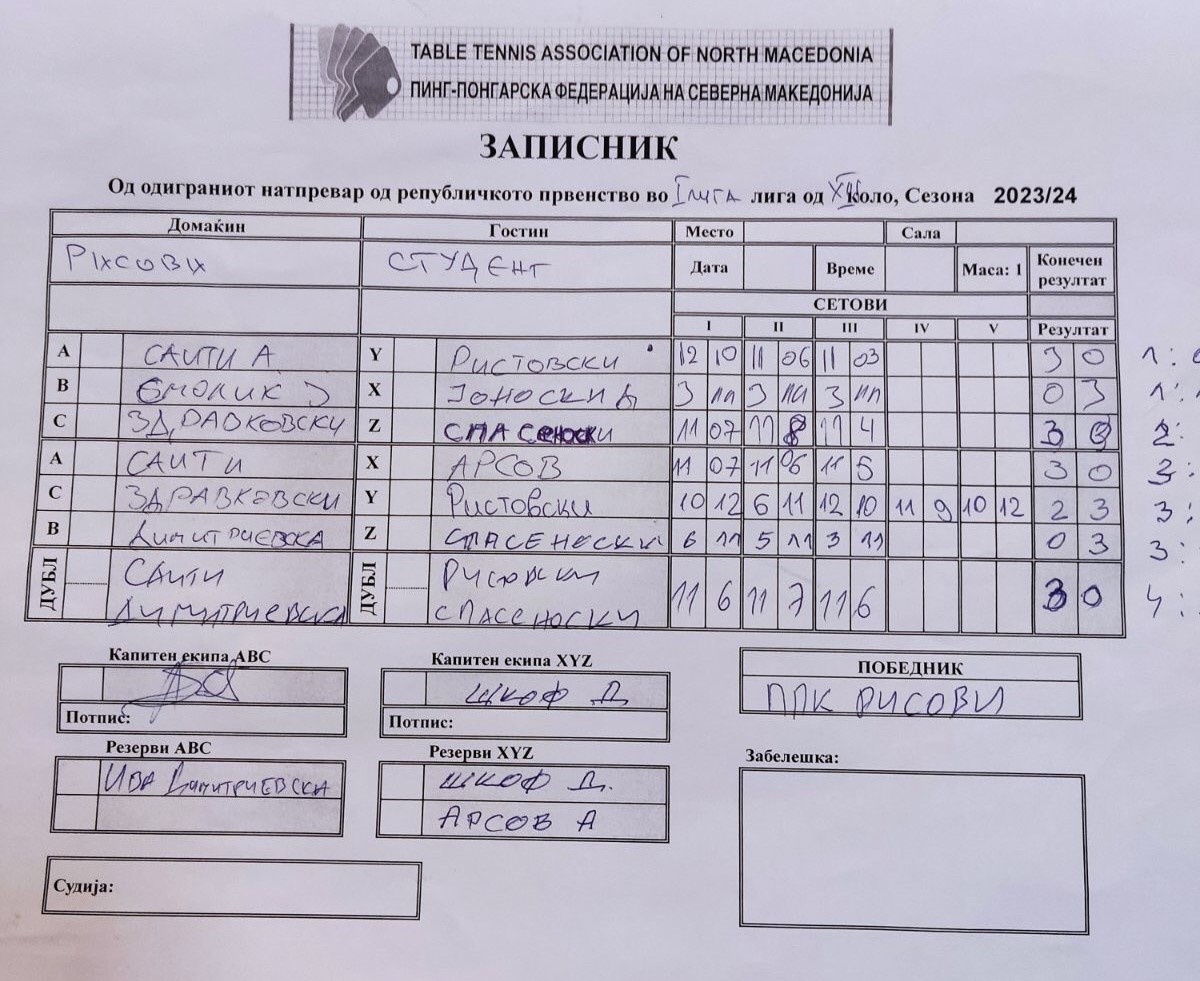 TABLE TENNIS ASSOCIATION OF NORTH MACEDONIA
ПИНГ-ПОНГАРСКА ФЕДЕРАЦИЈА НА СЕВЕРНА МАКЕДОНИЈА
ЗАПИСНИК
Од одиграниот натпревар од републичкото првенство во I лига лига од коло, Сезона 2023/24
Домаќин Гостин Место Сала
СТУДЕНТ Дата Време Маса: 1 Конечен резултат
СЕТОВИ
I II III IV V Резултат
A САИТИ А Y Ристовски 12 10 11 06 11 03 3 0
B X 3 11 3 11 3 11 0 3 1:
C ЗДРАВКОВСКИ Z СПАСЕНОСКИ 11 07 11 8 11 4 3 0 2:
A САИТИ X АРСОВ 11 07 11 06 11 5 3 0 3:
C ЗДРАВКОВСКИ Y Ристовски 10 12 6 11 12 10 11 9 10 12 2 3 3:
B ДИМИТРИЕВСКА Z СПАСЕНОСКИ 6 11 5 11 3 11 0 3 3:
ДУБЛ САИТИ ДУБЛ 11 6 11 7 11 6 3 0 4:
ДИМИТРИЕВСКА СПАСЕНОСКИ
Капитен екипа ABC Капитен екипа XYZ ПОБЕДНИК
ШКОФ Д ППК РИСОВИ
Потпис: Потпис:
Резерви ABC Резерви XYZ Забелешка:
ИВА ДИМИТРИЕВСКА ШКОФ Д.
АРСОВ А
Судија: